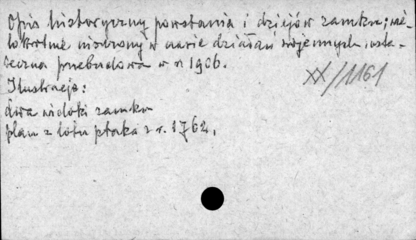 Opis historyczny powstania i dziejów zamku; wie-
lokrotnie niszczony w czasie działań wojennych, osta-
teczna przebudowa w r. 1906.
XX/1161
Ilustracje:
dwa widoki zamku
plan z lotu ptaka z r. 1762.